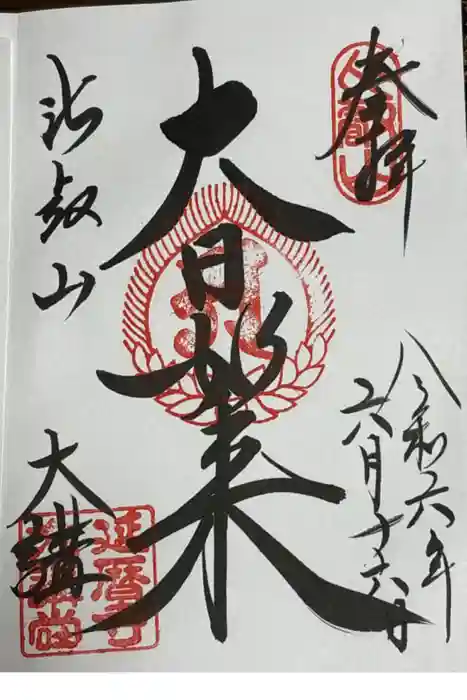 奉拝
令和六年
六月十六日
大日如来
比叡山
大講
延暦寺